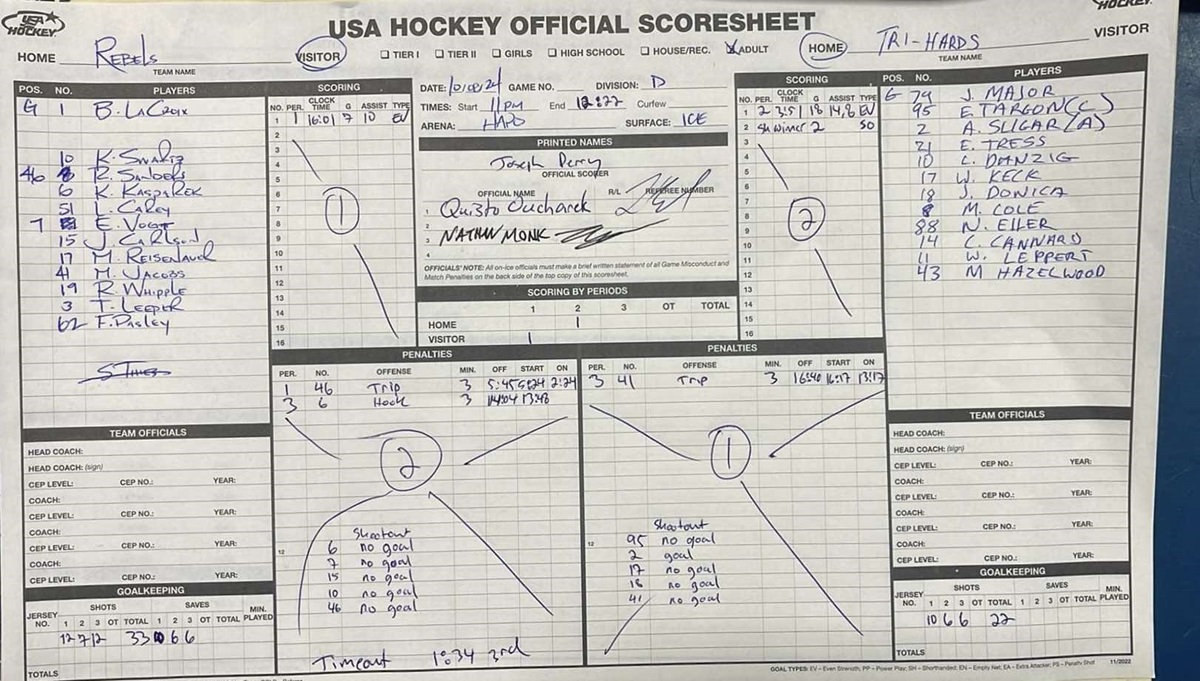 USA HOCKEY
HOCKEY
USA HOCKEY OFFICIAL SCORESHEET
HOME Rebels VISITOR
TEAM NAME
☐ TIER I ☐ TIER II ☐ GIRLS ☐ HIGH SCHOOL ☐ HOUSE/REC. ☒ ADULT
HOME TRI-HARDS VISITOR
TEAM NAME
POS. NO. PLAYERS
G 1 B. LaCroix
10 K. Swartz
46 R. Sanders
6 K. Kasparek
51 L. Carey
7 E. Vogt
15 J. Carlson
17 M. Reisenauer
41 M. Jacobs
19 R. Whipple
3 T. Leeper
62 F. Pasley
SCORING
NO. PER. CLOCK TIME G ASSIST TYPE
1 1 16:01 7 10 EV
2
3
4
5
6
7
8
9
10
11
12
13
14
15
16
1
DATE: 10/08/24 GAME NO. DIVISION: D
TIMES: Start 11PM End 12:22 Curfew
ARENA: HAPO SURFACE: ICE
PRINTED NAMES
Joseph Perry
OFFICIAL SCORER
OFFICIAL NAME R/L REFEREE NUMBER
1 Quisto Oucharek
2
3 NATHAN MONK
4
OFFICIALS' NOTE: All on-ice officials must make a brief written statement of all Game Misconduct and
Match Penalties on the back side of the top copy of this scoresheet.
SCORING BY PERIODS
1 2 3 OT TOTAL
HOME 1
VISITOR 1
SCORING
NO. PER. CLOCK TIME G ASSIST TYPE
1 2 3:51 18 14,8 EV
2 sh winner 2 SO
3
4
5
6
7
8
9
10
11
12
13
14
15
16
2
POS. NO. PLAYERS
G 79 J. MAJOR
95 E. TARGON (C)
2 A. SLIGAR (A)
21 E. TRESS
10 L. DANZIG
17 W. KECK
18 J. DONICA
8 M. COLE
88 N. EILER
14 C. CANNARD
11 W. LEPPERT
43 M HAZELWOOD
PENALTIES
PER. NO. OFFENSE MIN. OFF START ON
1 46 Trip 3 5:45 5:24 2:24
3 6 Hook 3 14:04 13:48
2
Shootout
12
6 no goal
7 no goal
15 no goal
10 no goal
46 no goal
Timeout 1:34 3rd
PENALTIES
PER. NO. OFFENSE MIN. OFF START ON
3 41 Trip 3 16:40 16:17 13:17
1
Shootout
12
95 no goal
2 goal
17 no goal
18 no goal
41 no goal
TEAM OFFICIALS
HEAD COACH:
HEAD COACH: (sign)
CEP LEVEL: CEP NO.: YEAR:
COACH:
CEP LEVEL: CEP NO.: YEAR:
COACH:
CEP LEVEL: CEP NO.: YEAR:
COACH:
CEP LEVEL: CEP NO.: YEAR:
GOALKEEPING
JERSEY NO. SHOTS SAVES MIN. PLAYED
1 2 3 OT TOTAL 1 2 3 OT TOTAL
12 7 12 33 10 6 6
TOTALS
TEAM OFFICIALS
HEAD COACH:
HEAD COACH: (sign)
CEP LEVEL: CEP NO.: YEAR:
COACH:
CEP LEVEL: CEP NO.: YEAR:
COACH:
CEP LEVEL: CEP NO.: YEAR:
COACH:
CEP LEVEL: CEP NO.: YEAR:
GOALKEEPING
JERSEY NO. SHOTS SAVES MIN. PLAYED
1 2 3 OT TOTAL 1 2 3 OT TOTAL
10 6 6 22
TOTALS
GOAL TYPES: EV – Even Strength, PP – Power Play, SH – Shorthanded, EN – Empty Net, EA – Extra Attacker, PS – Penalty Shot 11/2022